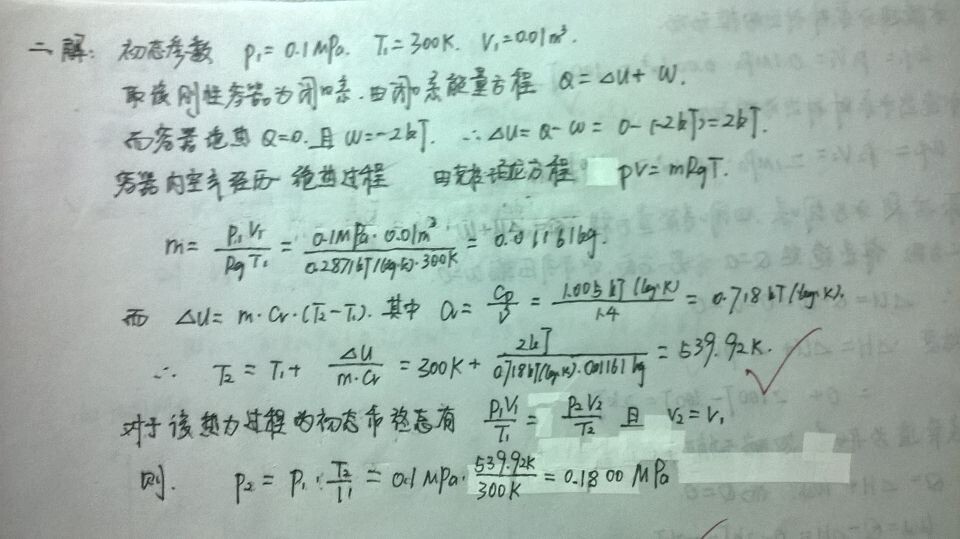 二 解: 初态参数 p₁=0.1MPa. T₁=300K. V₁=0.01m³.
取该刚性容器为闭口系.由闭口系能量方程 Q=ΔU+W.
而容器绝热Q=0.且W=-2kJ. ∴ΔU=Q-W=0-(-2kJ)=2kJ.
容器内空气经历一绝热过程 由克拉珀龙方程 pV=mRgT.
m= p₁V₁/RgT₁ = 0.1MPa·0.01m³/0.2871kJ/(kg·k)·300K = 0.01161kg.
而 ΔU=m·Cv·(T₂-T₁).其中 Cv= Cp/γ = 1.005kJ/(kg·K)/1.4 = 0.718kJ/(kg·K).
∴ T₂=T₁+ ΔU/m·Cv =300K+ 2kJ/0.718kJ/(kg·K)·0.01161kg =539.92K.
对于该热力过程的初态和终态有 p₁V₁/T₁ = p₂V₂/T₂ 且 V₂=V₁
则. p₂=p₁·T₂/T₁ =0.1MPa·539.92K/300K =0.1800MPa